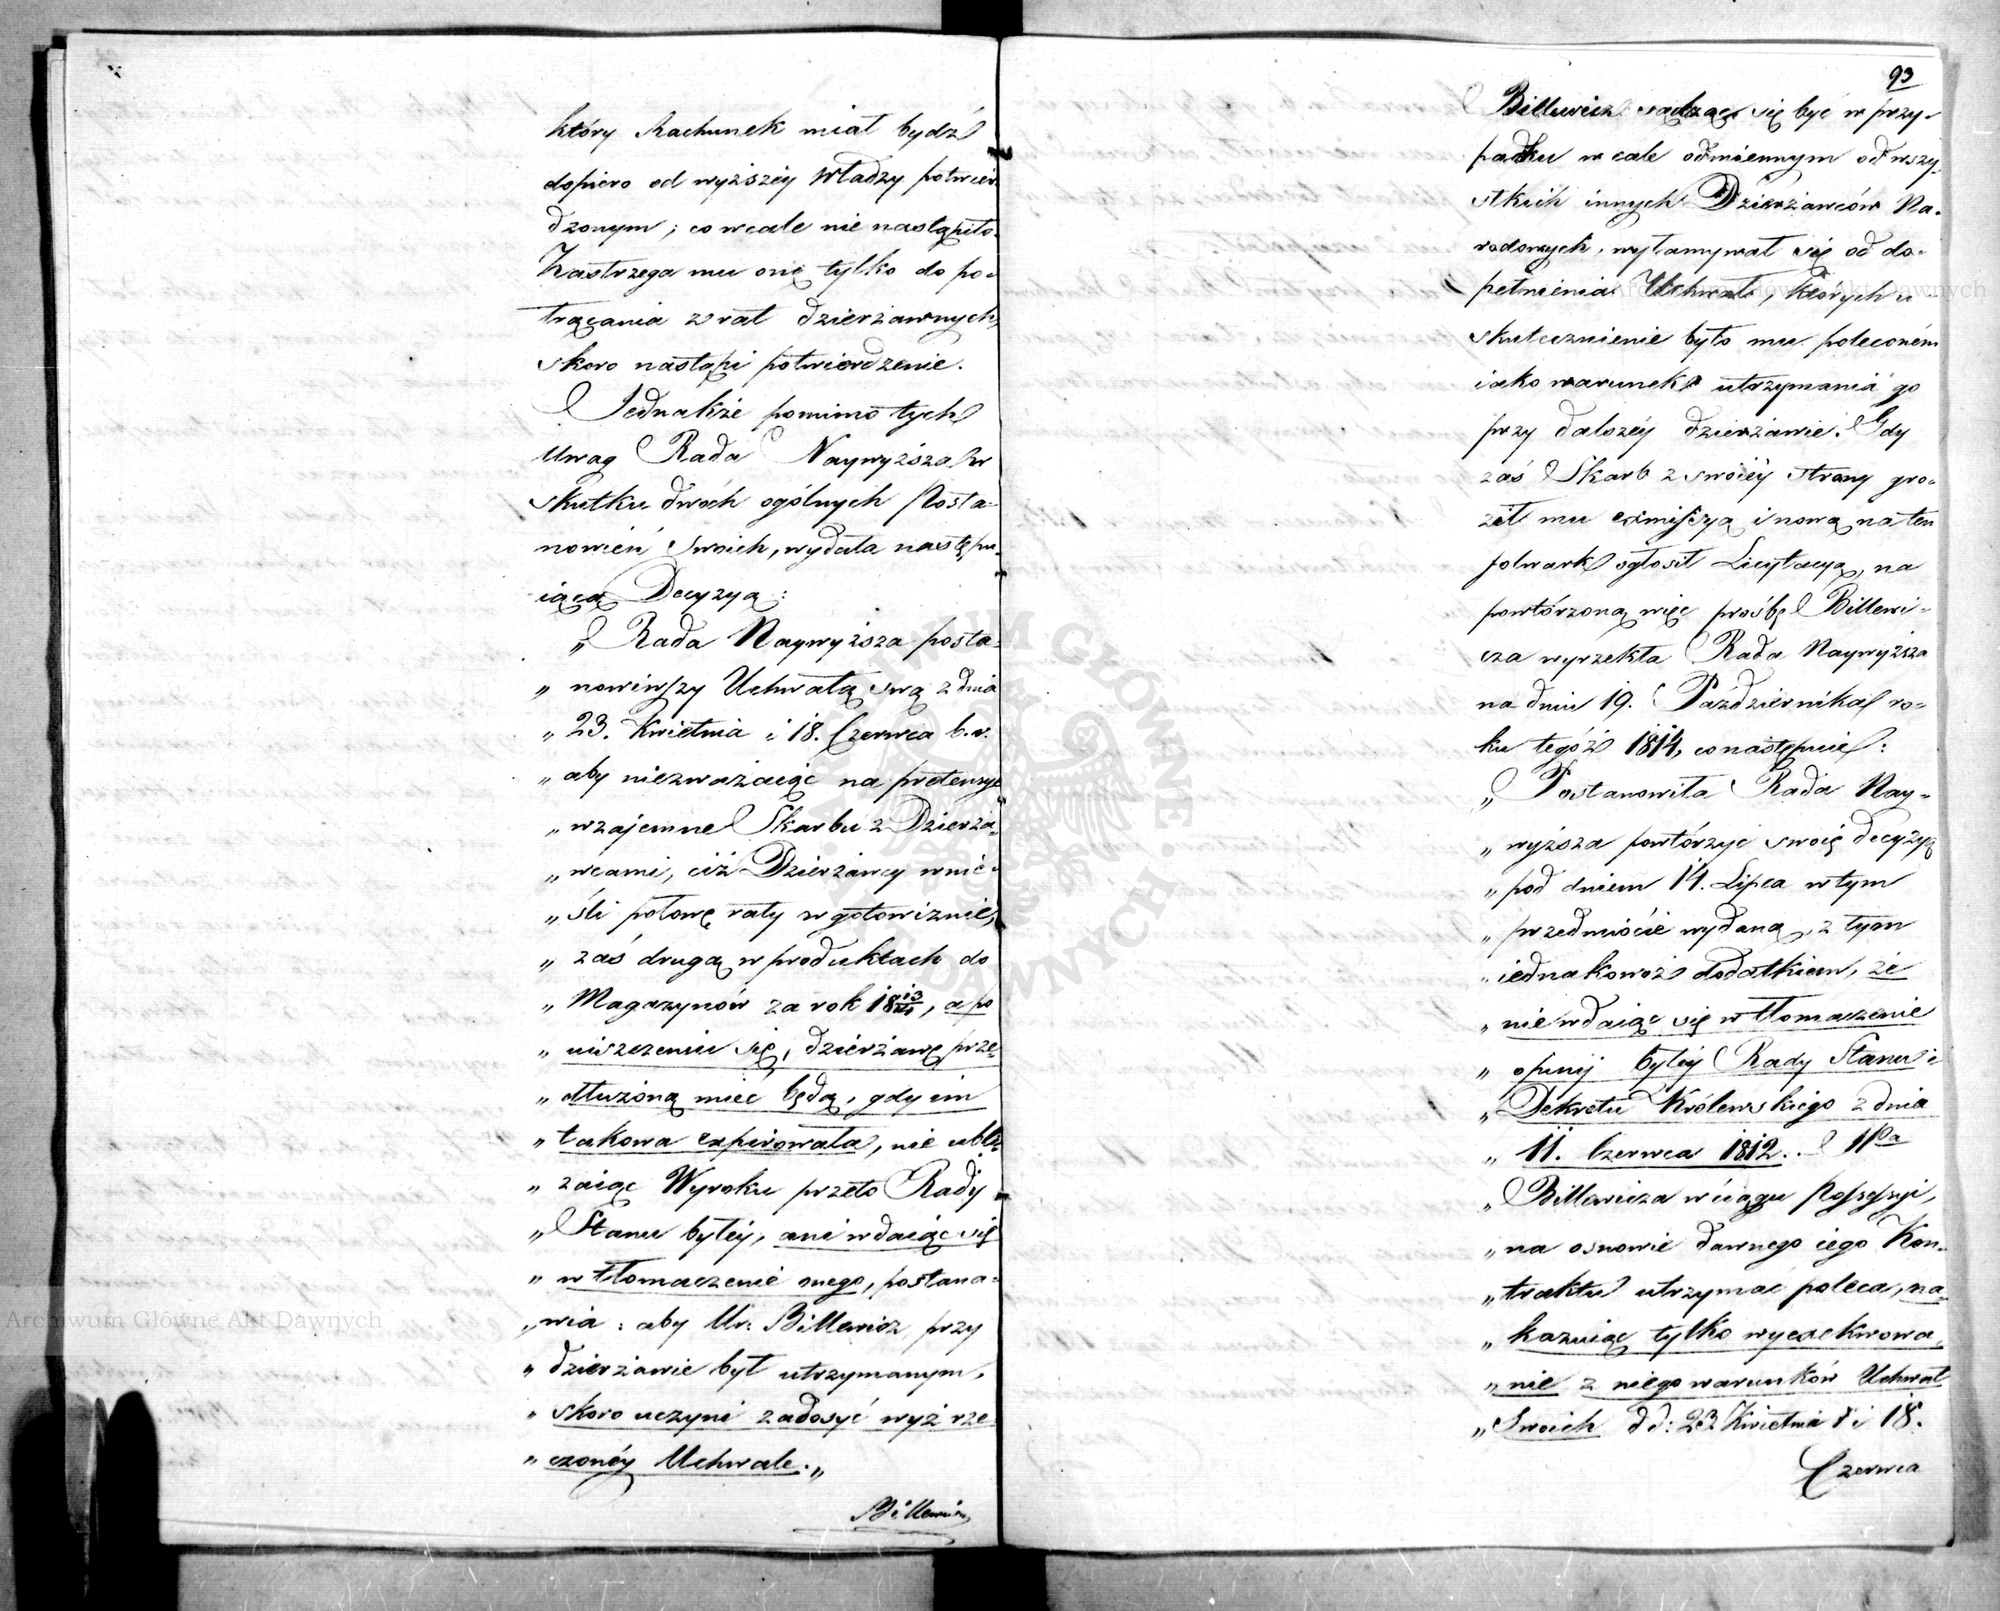 który Rachunek miał bydź
dopiero od wyższéy Władzy potwier
dzonym; co wcale nie nastąpiło.
Zastrzega mu onę tylko do po-
trącania z rat dzierżawnych,
skoro nastąpi potwierdzenie.
Jednakże pomimo tych
Uwag Rada Naywyższa w
skutku dwóch ogólnych Posta-
nowień swoich, wydała nastę pu-
iącą Decyzyą:
„ Rada Naywyższa posta-
„ nowiwszy Uchwałą swą z dnia
„ 23. Kwietnia i 18. Czerwca b. r.
„ aby niezważaiąc na pretensye
„ wzajemne Skarbu z Dzierża-
„ wcami, ciż Dzierżawcy wnie-
„ śli połowę raty w gotowiznie,
„ zaś drugą w produktach do
„ Magazynów za rok 18 13/14, a po
„ uiszczeniu się, dzierżawę prze-
„ dłużoną mieć będą, gdy im
„ takowa expirowała, nie ubli
„ żaiąc Wyroku przeto Rady
„ Stanu byłéy, ani wdaiąc się
„ w tłomaczenie onego, postana-
„ wia: aby Ur: Billewicz przy
„ dzierżawie był utrzymanym,
„ skoro uczyni zadosyć wyż rze
„ czonéy Uchwale.„
Billewicz
93
Billewicz sądząc się być w przy-
padku wcale odmiennym od wszy-
stkich innych Dzierżawców Na-
rodowych, wyłamywał się od do-
pełnienia Uchwał, których u-
skutecznienie było mu poleconém
iako warunek utrzymania go
przy dalszéy dzierżawie. Gdy
zaś Skarb z swoiéy strony gro-
ził mu exmissyą i nową na ten
folwark ogłosił Licytacyą, na
powtórzoną więc prośbę Billewi-
cza wyrzekła Rada Naywyższa
na dniu 19. Października ro-
ku tegóż 1814, co następuie:
„ Postanowiła Rada Nay-
„ wyższa powtórzyć swoię decyzyą
„ pod dniem 14. Lipca w tym
„ przedmiocie wydaną, z tym
„ iednakowoż dodatkiem, że
„ nie wdaiąc się w tłomaczenie
„ opinij byłéy Rady Stanu i
„ Dekretu Królewskiego z dnia
„ 11. Czerwca 1812.. Ura
„ Billewicza w ciągu Possessyi,
„ na osnowie dawnego iego Kon-
„ traktu utrzymać poleca, na-
„ kazuiąc tylko wyexekwowa-
„ nie z niego warunków Uchwał
„ Swoich d d: 23. Kwietnia i 18.
Czerwca
Archiwum Główne Akt Dawnych
Archiwum Główne Akt Dawnych